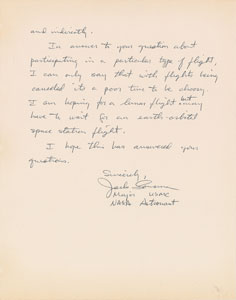 and indirectly.
In answer to your question about
participating in a particular type of flight,
I can only say that with flights being
canceled its a poor time to be choosy.
I am hoping for a lunar flight but may
have to wait for an earth-orbital
space station flight.
I hope this has answered your
questions.
Sincerely,
Jack
Major USMC
NASA Astronaut